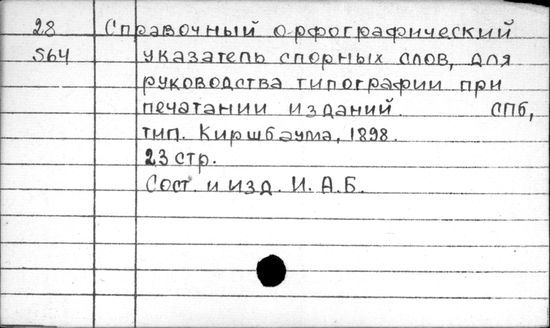 28 Справочный орфографический
S64 указатель спорных слов, для
руководства типографии при
печатании изданий. СПб,
тип. Киршбаума, 1898.
23 стр.
Сост. и изд. И. А. Б.